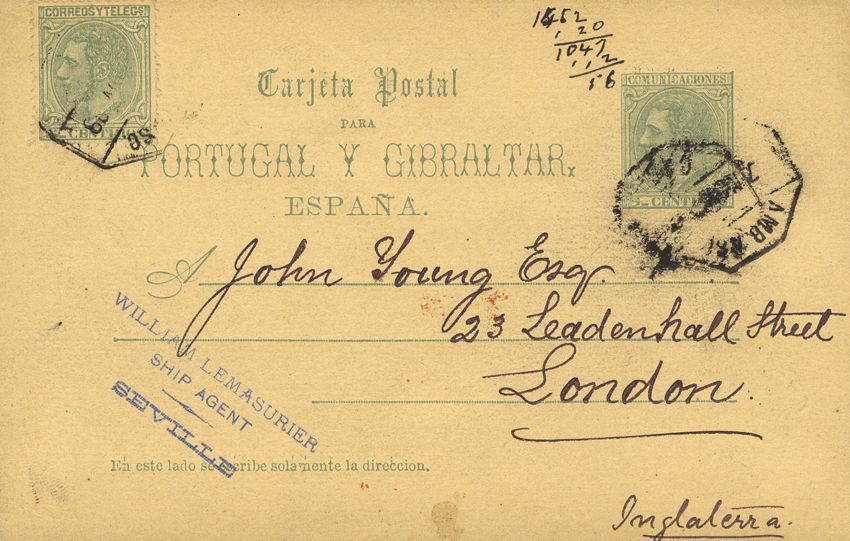 CORREOS Y TELEGS
CENTIMOS
1452
1 20
1047
112
56
Tarjeta Postal
PARA
PORTUGAL Y GIBRALTAR.
ESPAÑA.
COMUNICACIONES
CENTIMOS
AMB. ASC
A John Young Esq.
23 Leadenhall Street
London.
WILLIAM LEMASURIER
SHIP AGENT
SEVILLE
En este lado se escribe solamente la direccion.
Inglaterra.